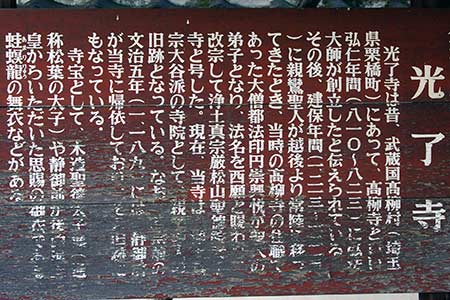 光了寺
光了寺は昔、武蔵国高柳村(埼玉
県栗橋町)にあって、高柳寺といい
弘仁年間(八一〇~八二三)に弘法
大師が創立したと伝えられている
その後、建保年間(一二一三~
)に親鸞聖人が越後より常陸に移
てきたとき、当時の高柳寺の住職で
あった大僧都法印円崇興悦が聖人の
弟子となり、法名を西願と賜わ
改宗して浄土真宗厳松山聖
寺と号した。現在、当寺は
宗大谷派の寺院として、親
旧跡となっている。なお、
文治五年(一一八九)に
が当寺に帰依しており、
もなっている。
寺宝として、木造聖徳太子
称松葉の太子)や静御前が後
皇からいただいた恩賜の御衣であ
蛙蟆龍の舞衣などがあ